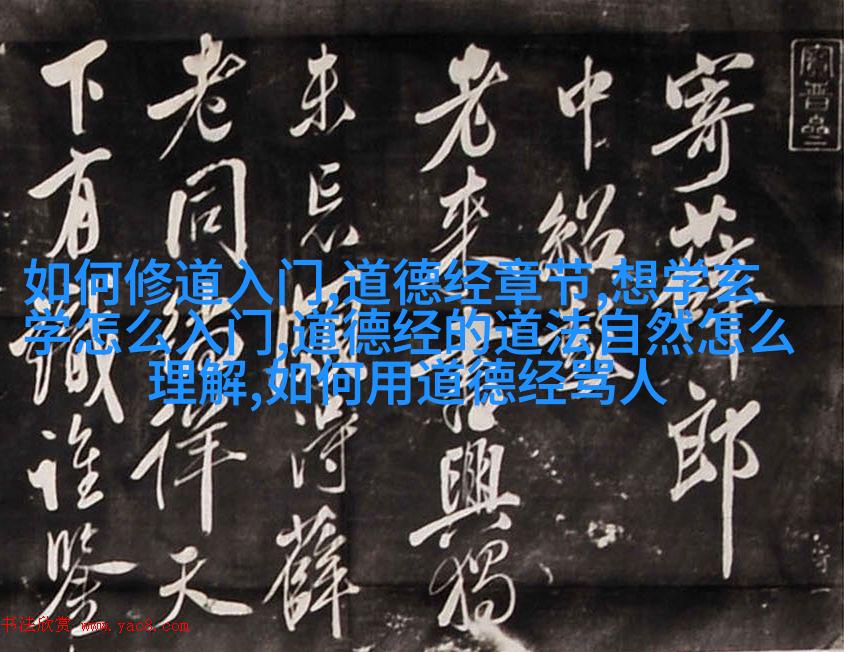 寄薛郎
中紹彭
老来書興獨
未忘頗得薛
老同徜徉天
下有識誰鑒
如何修道入门,道德经章节,想学玄
学怎么入门,道德经的道法自然怎么
理解,如何用道德经骂人
书法欣赏 www.yac8.com